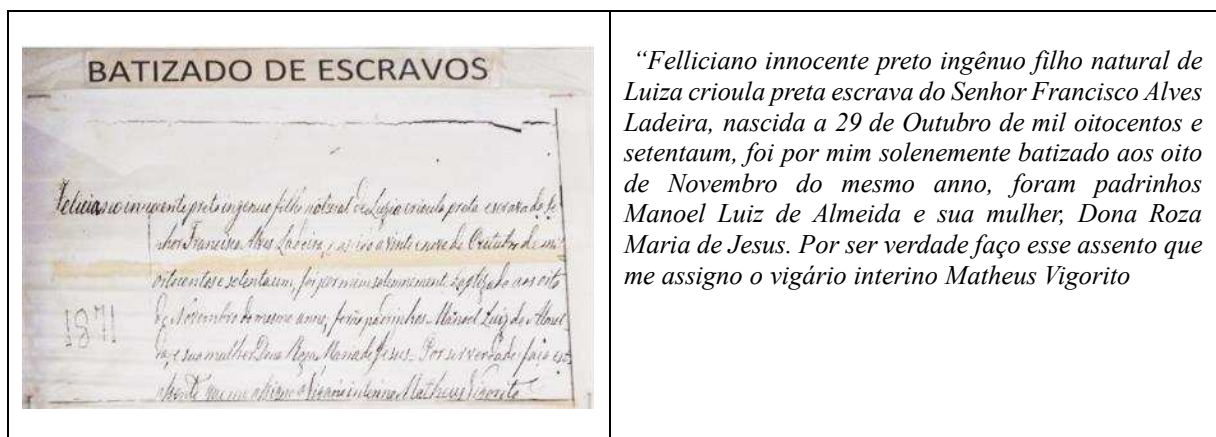 BATIZADO DE ESCRAVOS
Feliciano innocente preto ingenuo filho natural de Luzia crioula preta escrava do Se
nhor Francisco Alves Ladeira, nascido a vinte e nove de Outubro de mil
oitocentos e setentaum, foi por mim solemnemente baptizado aos oito
de Novembro do mesmo anno, forão padrinhos Manoel Luiz de Almei
da, e sua mulher Dona Roza Maria de Jesus. Por ser verdade faço este
assento que me assigno o Vigario interino Matheus Vigorito
1871
“Felliciano innocente preto ingênuo filho natural de
Luiza crioula preta escrava do Senhor Francisco Alves
Ladeira, nascida a 29 de Outubro de mil oitocentos e
setentaum, foi por mim solenemente batizado aos oito
de Novembro do mesmo anno, foram padrinhos
Manoel Luiz de Almeida e sua mulher, Dona Roza
Maria de Jesus. Por ser verdade faço esse assento que
me assigno o vigário interino Matheus Vigorito